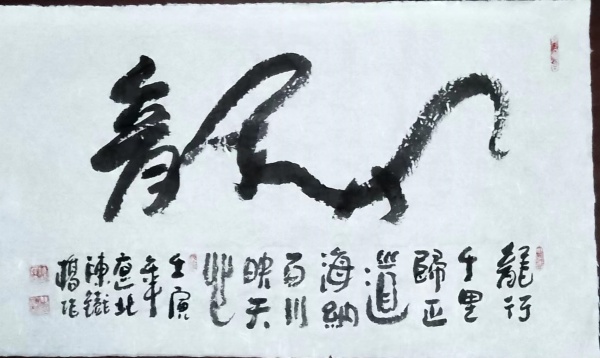 龍
龍行
千里
歸正
道
海納
百川
映天
壬寅
年
北
陳鐵